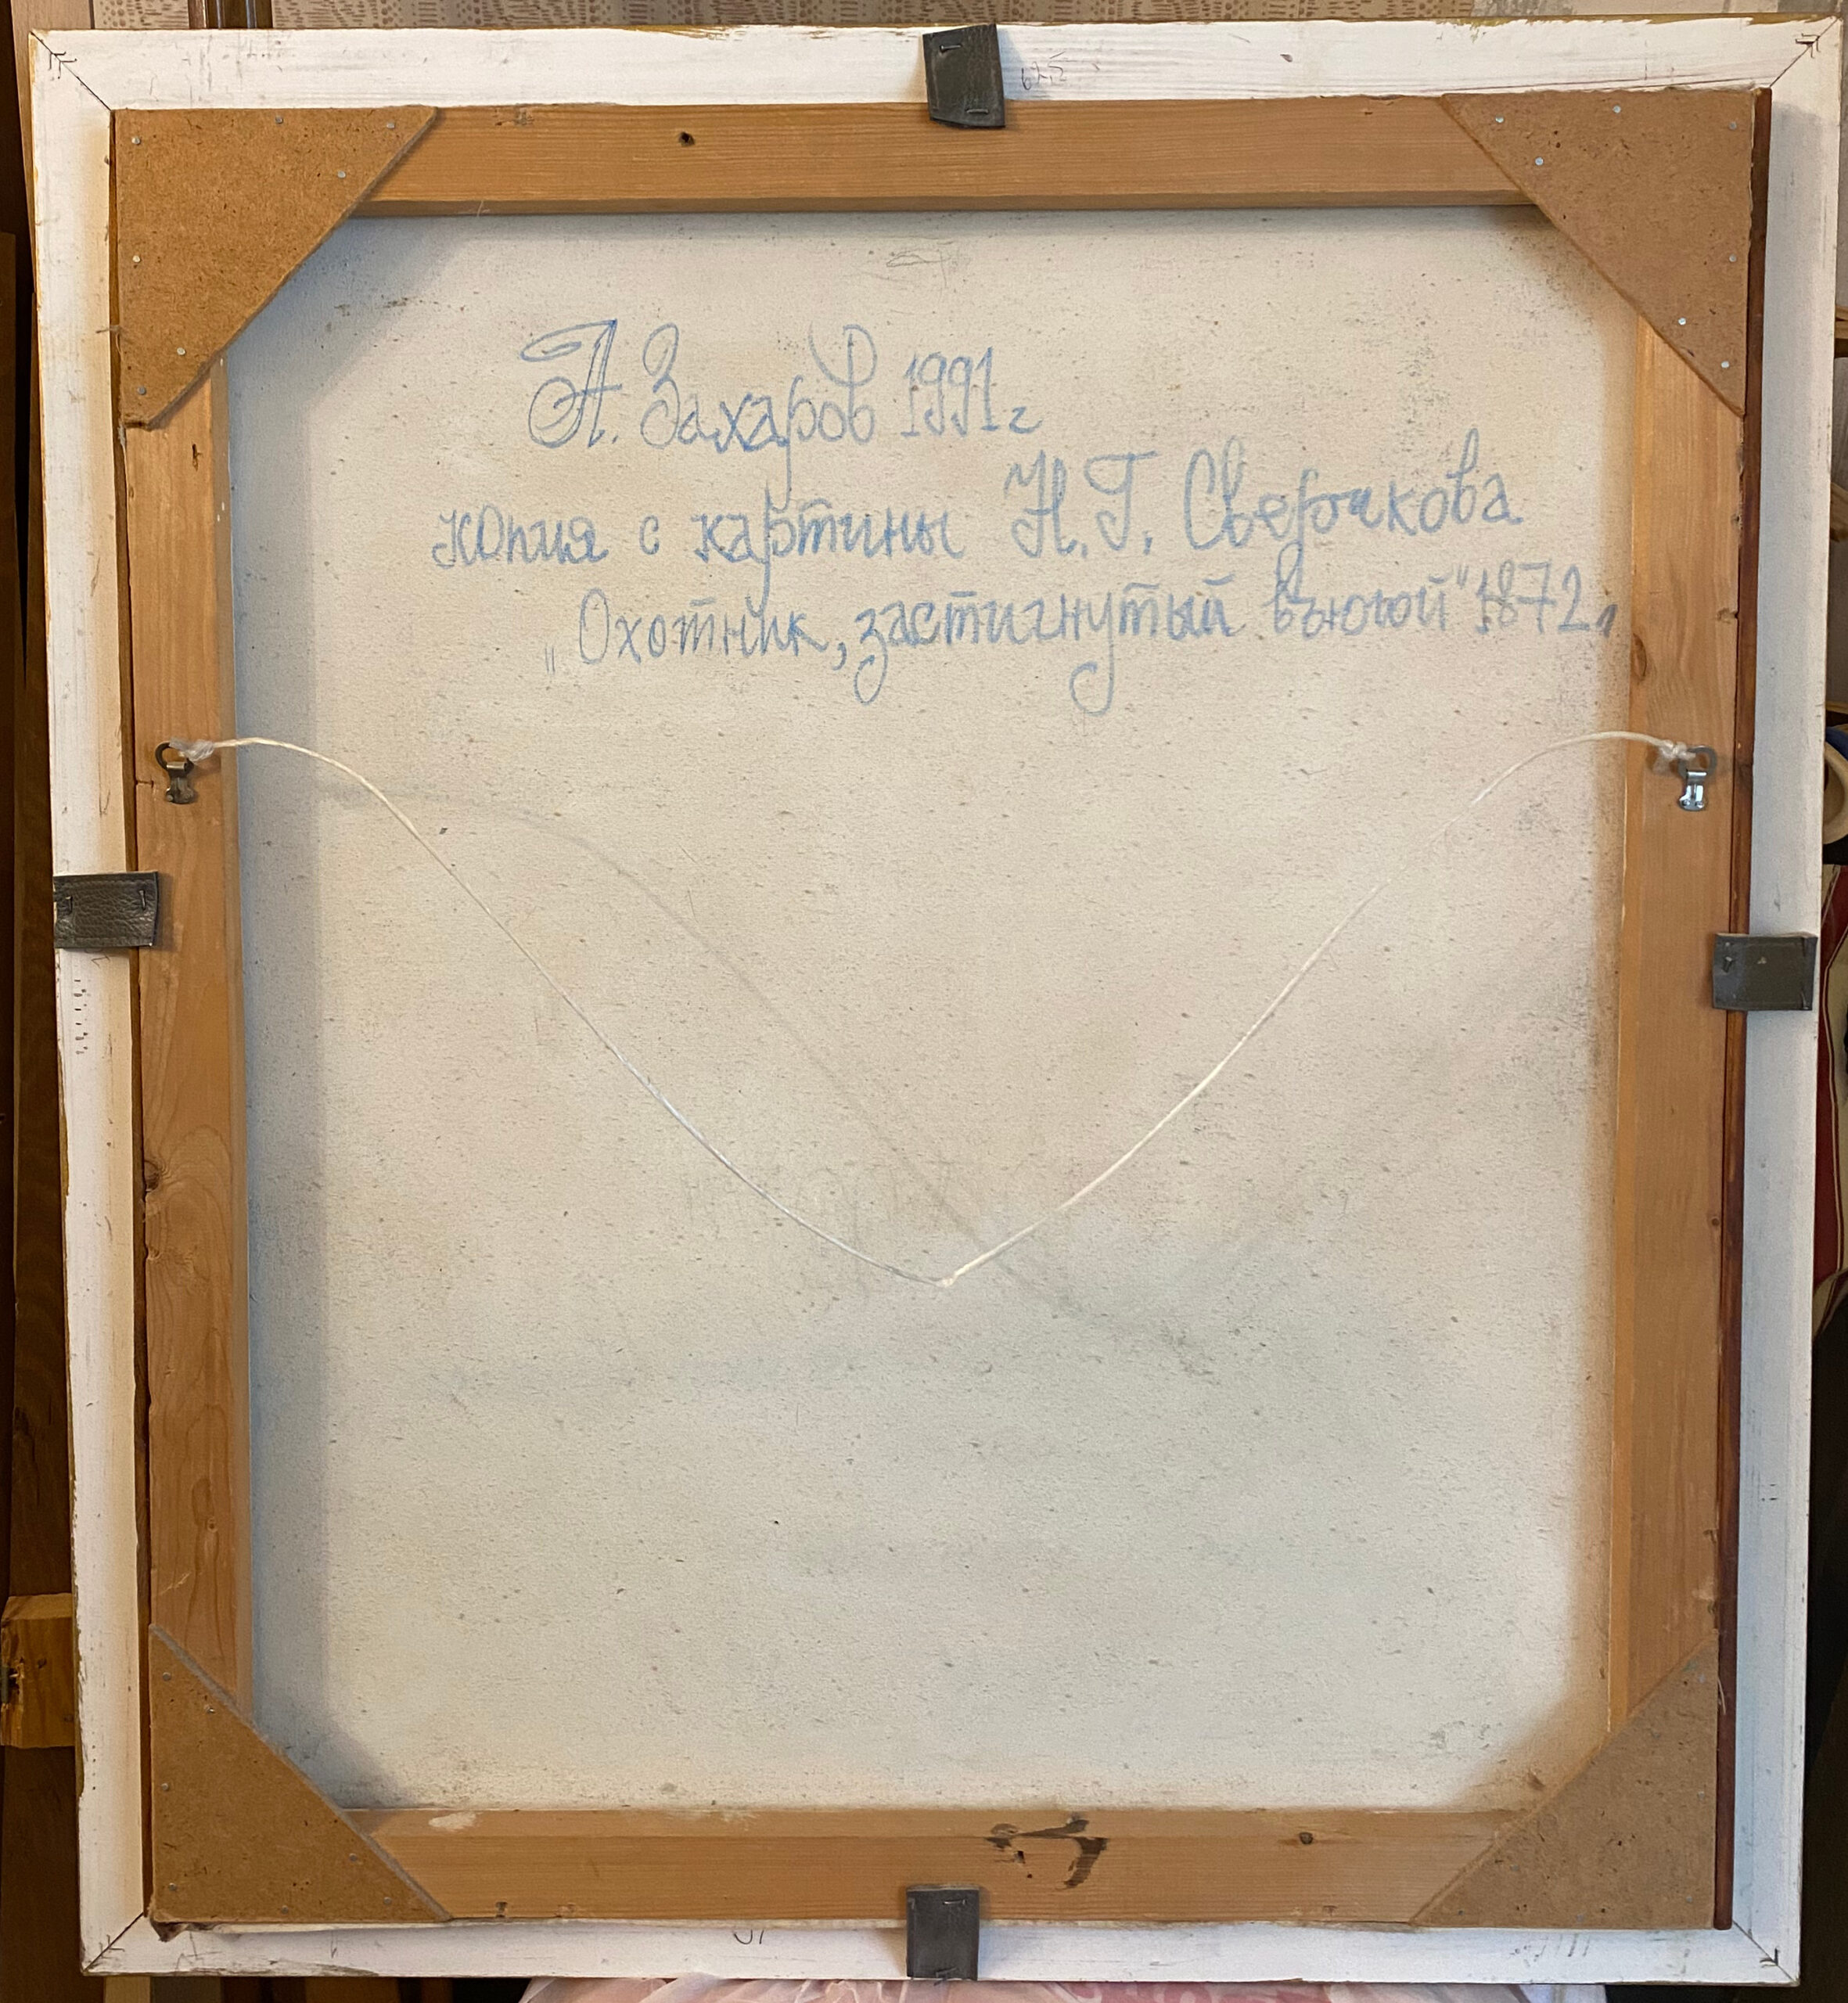 А. Захаров 1991 г
копия с картины Н. Г. Сверчкова
„Охотник, застигнутый вьюгой" 1872